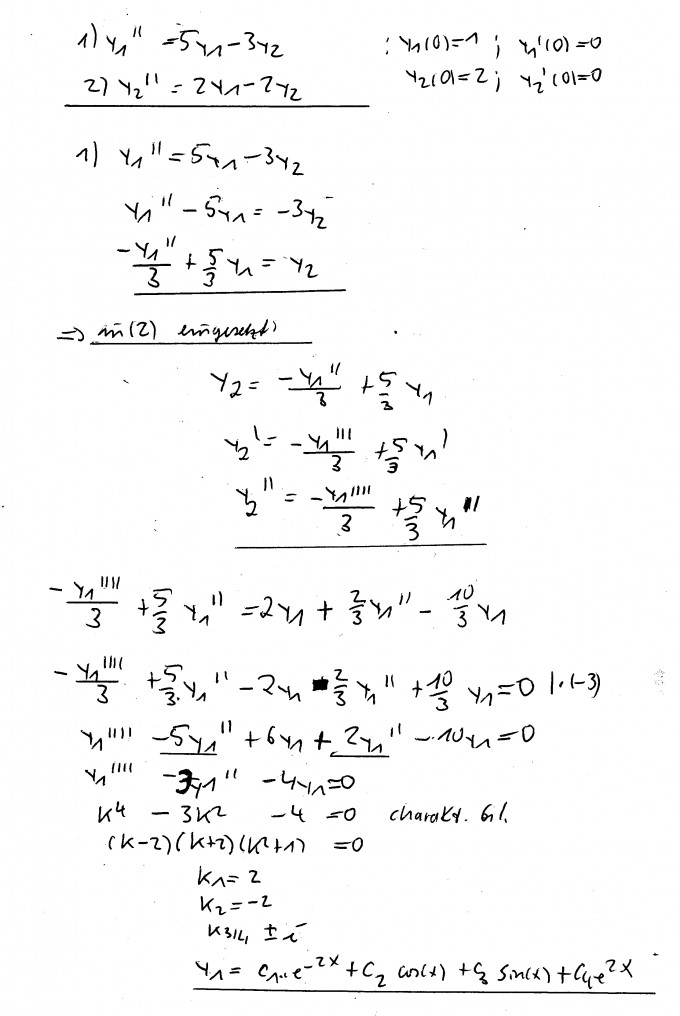 1) y₁'' = 5y₁ - 3y₂ ; y₁(0) = 1 ; y₁'(0) = 0
2) y₂'' = 2y₁ - 2y₂ y₂(0) = 2 ; y₂'(0) = 0
1) y₁'' = 5y₁ - 3y₂
y₁'' - 5y₁ = -3y₂
-y₁''/3 + 5/3 y₁ = y₂
=> in (2) eingesetzt:
y₂ = -y₁''/3 + 5/3 y₁
y₂' = -y₁'''/3 + 5/3 y₁'
y₂'' = -y₁''''/3 + 5/3 y₁''
-y₁''''/3 + 5/3 y₁'' = 2y₁ + 2/3 y₁'' - 10/3 y₁
-y₁''''/3 + 5/3 y₁'' - 2y₁ - 2/3 y₁'' + 10/3 y₁ = 0 |·(-3)
y₁'''' - 5y₁'' + 6y₁ + 2y₁'' - 10y₁ = 0
y₁'''' - 3y₁'' - 4y₁ = 0
k⁴ - 3k² - 4 = 0 charakt. Gl.
(k-2)(k+2)(k²+1) = 0
k₁ = 2
k₂ = -2
k₃/₄ ± i
y₁ = C₁·e^(-2x) + C₂ cos(x) + C₃ sin(x) + C₄e^(2x)